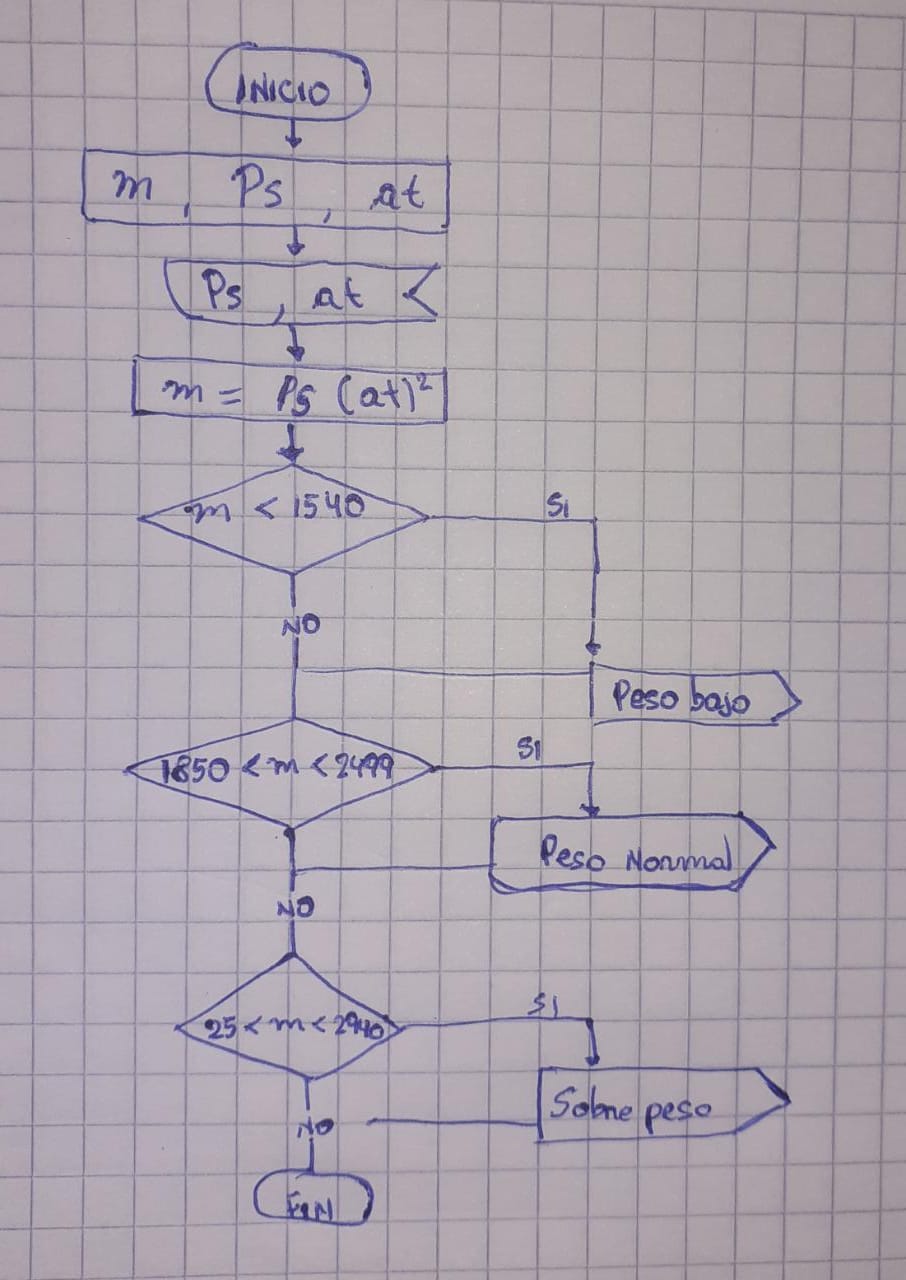 INICIO
m , Ps , at
Ps , at
m = Ps (at)²
m < 1540
SI
NO
Peso bajo
1850 < m < 2499
SI
Peso Normal
NO
25 < m < 2940
SI
Sobre peso
NO
FIN